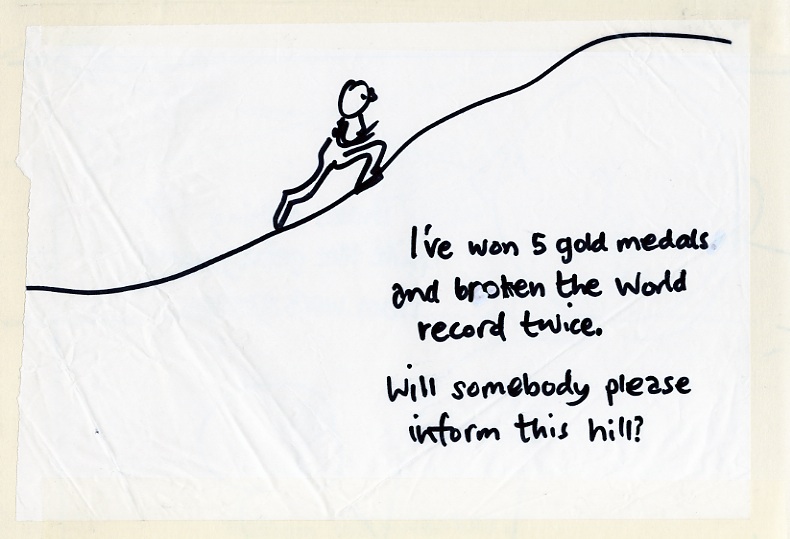 I've won 5 gold medals
and broken the World
record twice.
Will somebody please
inform this hill?